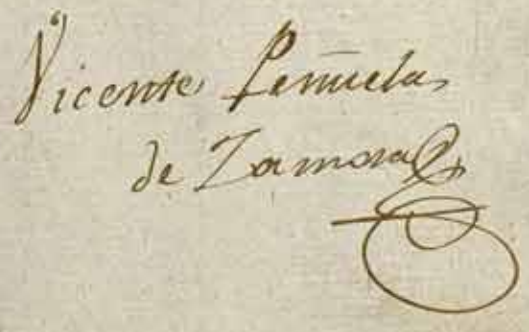 Vicente Peñuelas
de Zamora